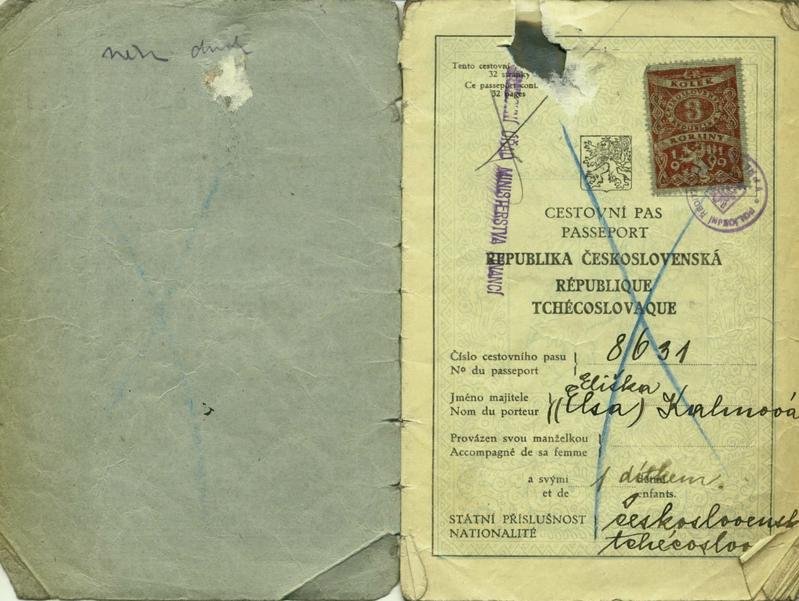 Tento cestovní
32 stránky
Ce passeport cont.
32 pages
MINISTERSTVA FINANCÍ
KOLEK
3
KORUNY
CESTOVNÍ PAS
PASSEPORT
REPUBLIKA ČESKOSLOVENSKÁ
RÉPUBLIQUE
TCHÉCOSLOVAQUE
Číslo cestovního pasu
No du passeport
8631
Jméno majitele
Nom du porteur
Eliška
(Elsa)
Provázen svou manželkou
Accompagné de sa femme
a svými 1 dítkem
et de enfants.
STÁTNÍ PŘÍSLUŠNOST
NATIONALITÉ
československ
tchécoslov